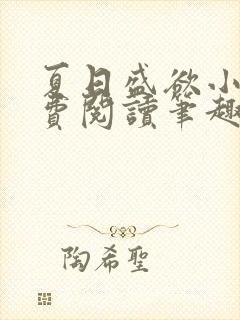 夏日盛欲小
費閱讀筆趣
陶希聖